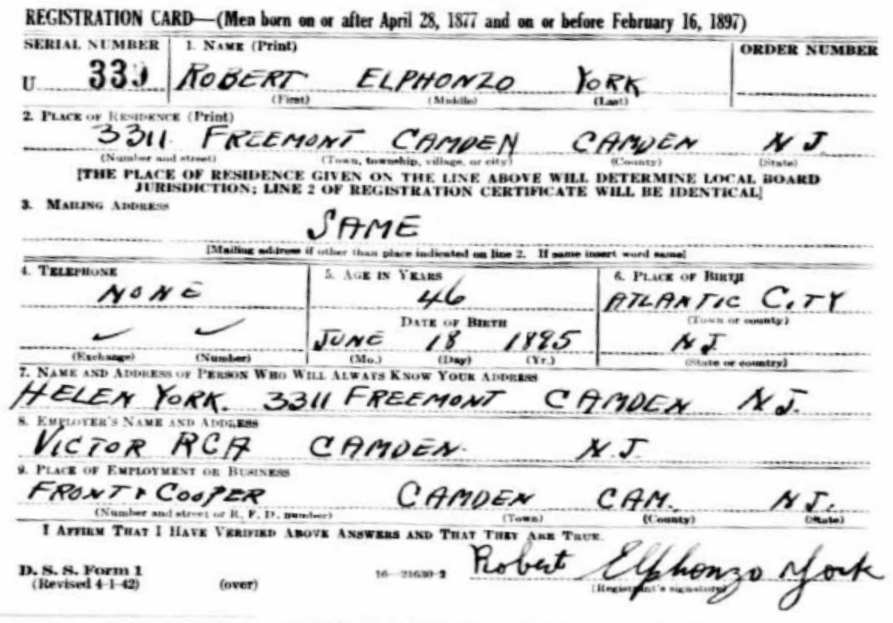 REGISTRATION CARD—(Men born on or after April 28, 1877 and on or before February 16, 1897)
SERIAL NUMBER 1. NAME (Print) ORDER NUMBER
U 339 ROBERT ELPHONZO YORK
(First) (Middle) (Last)
2. PLACE OF RESIDENCE (Print)
3311 FREEMONT CAMDEN CAMDEN N J
(Number and street) (Town, township, village, or city) (County) (State)
[THE PLACE OF RESIDENCE GIVEN ON THE LINE ABOVE WILL DETERMINE LOCAL BOARD
JURISDICTION; LINE 2 OF REGISTRATION CERTIFICATE WILL BE IDENTICAL]
3. MAILING ADDRESS
SAME
[Mailing address if other than place indicated on line 2. If same insert word same]
4. TELEPHONE 5. AGE IN YEARS 6. PLACE OF BIRTH
NONE 46 ATLANTIC CITY
DATE OF BIRTH (Town or county)
JUNE 18 1895 N J
(Exchange) (Number) (Mo.) (Day) (Yr.) (State or country)
7. NAME AND ADDRESS OF PERSON WHO WILL ALWAYS KNOW YOUR ADDRESS
HELEN YORK. 3311 FREEMONT CAMDEN N J.
8. EMPLOYER'S NAME AND ADDRESS
VICTOR RCA CAMDEN. N. J.
9. PLACE OF EMPLOYMENT OR BUSINESS
FRONT & COOPER CAMDEN CAM. N J.
(Number and street or R. F. D. number) (Town) (County) (State)
I AFFIRM THAT I HAVE VERIFIED ABOVE ANSWERS AND THAT THEY ARE TRUE.
D. S. S. Form 1
(Revised 4-1-42) (over) 16—21630-2 Robert Elphonzo York
(Registrant's signature)